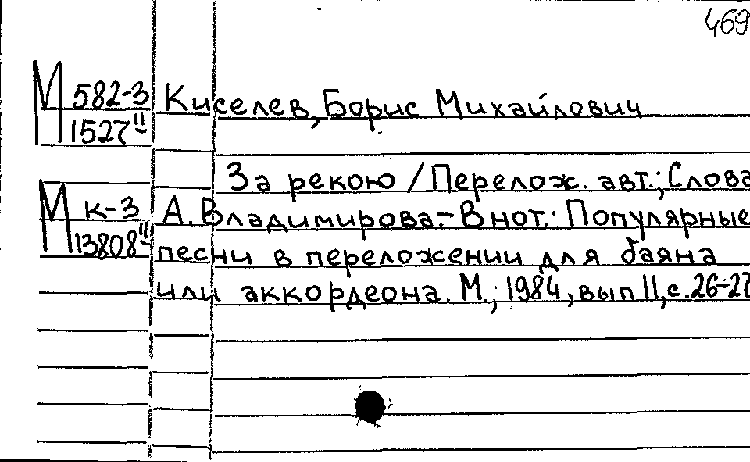 469
М 582-3 Киселев, Борис Михайлович
1527 II
За рекою / Перелож. авт.; Слова
М к-3 А. Владимирова.- В нот.: Популярные
13808 II песни в переложении для баяна
или аккордеона. М., 1984, вып II, с. 26-27